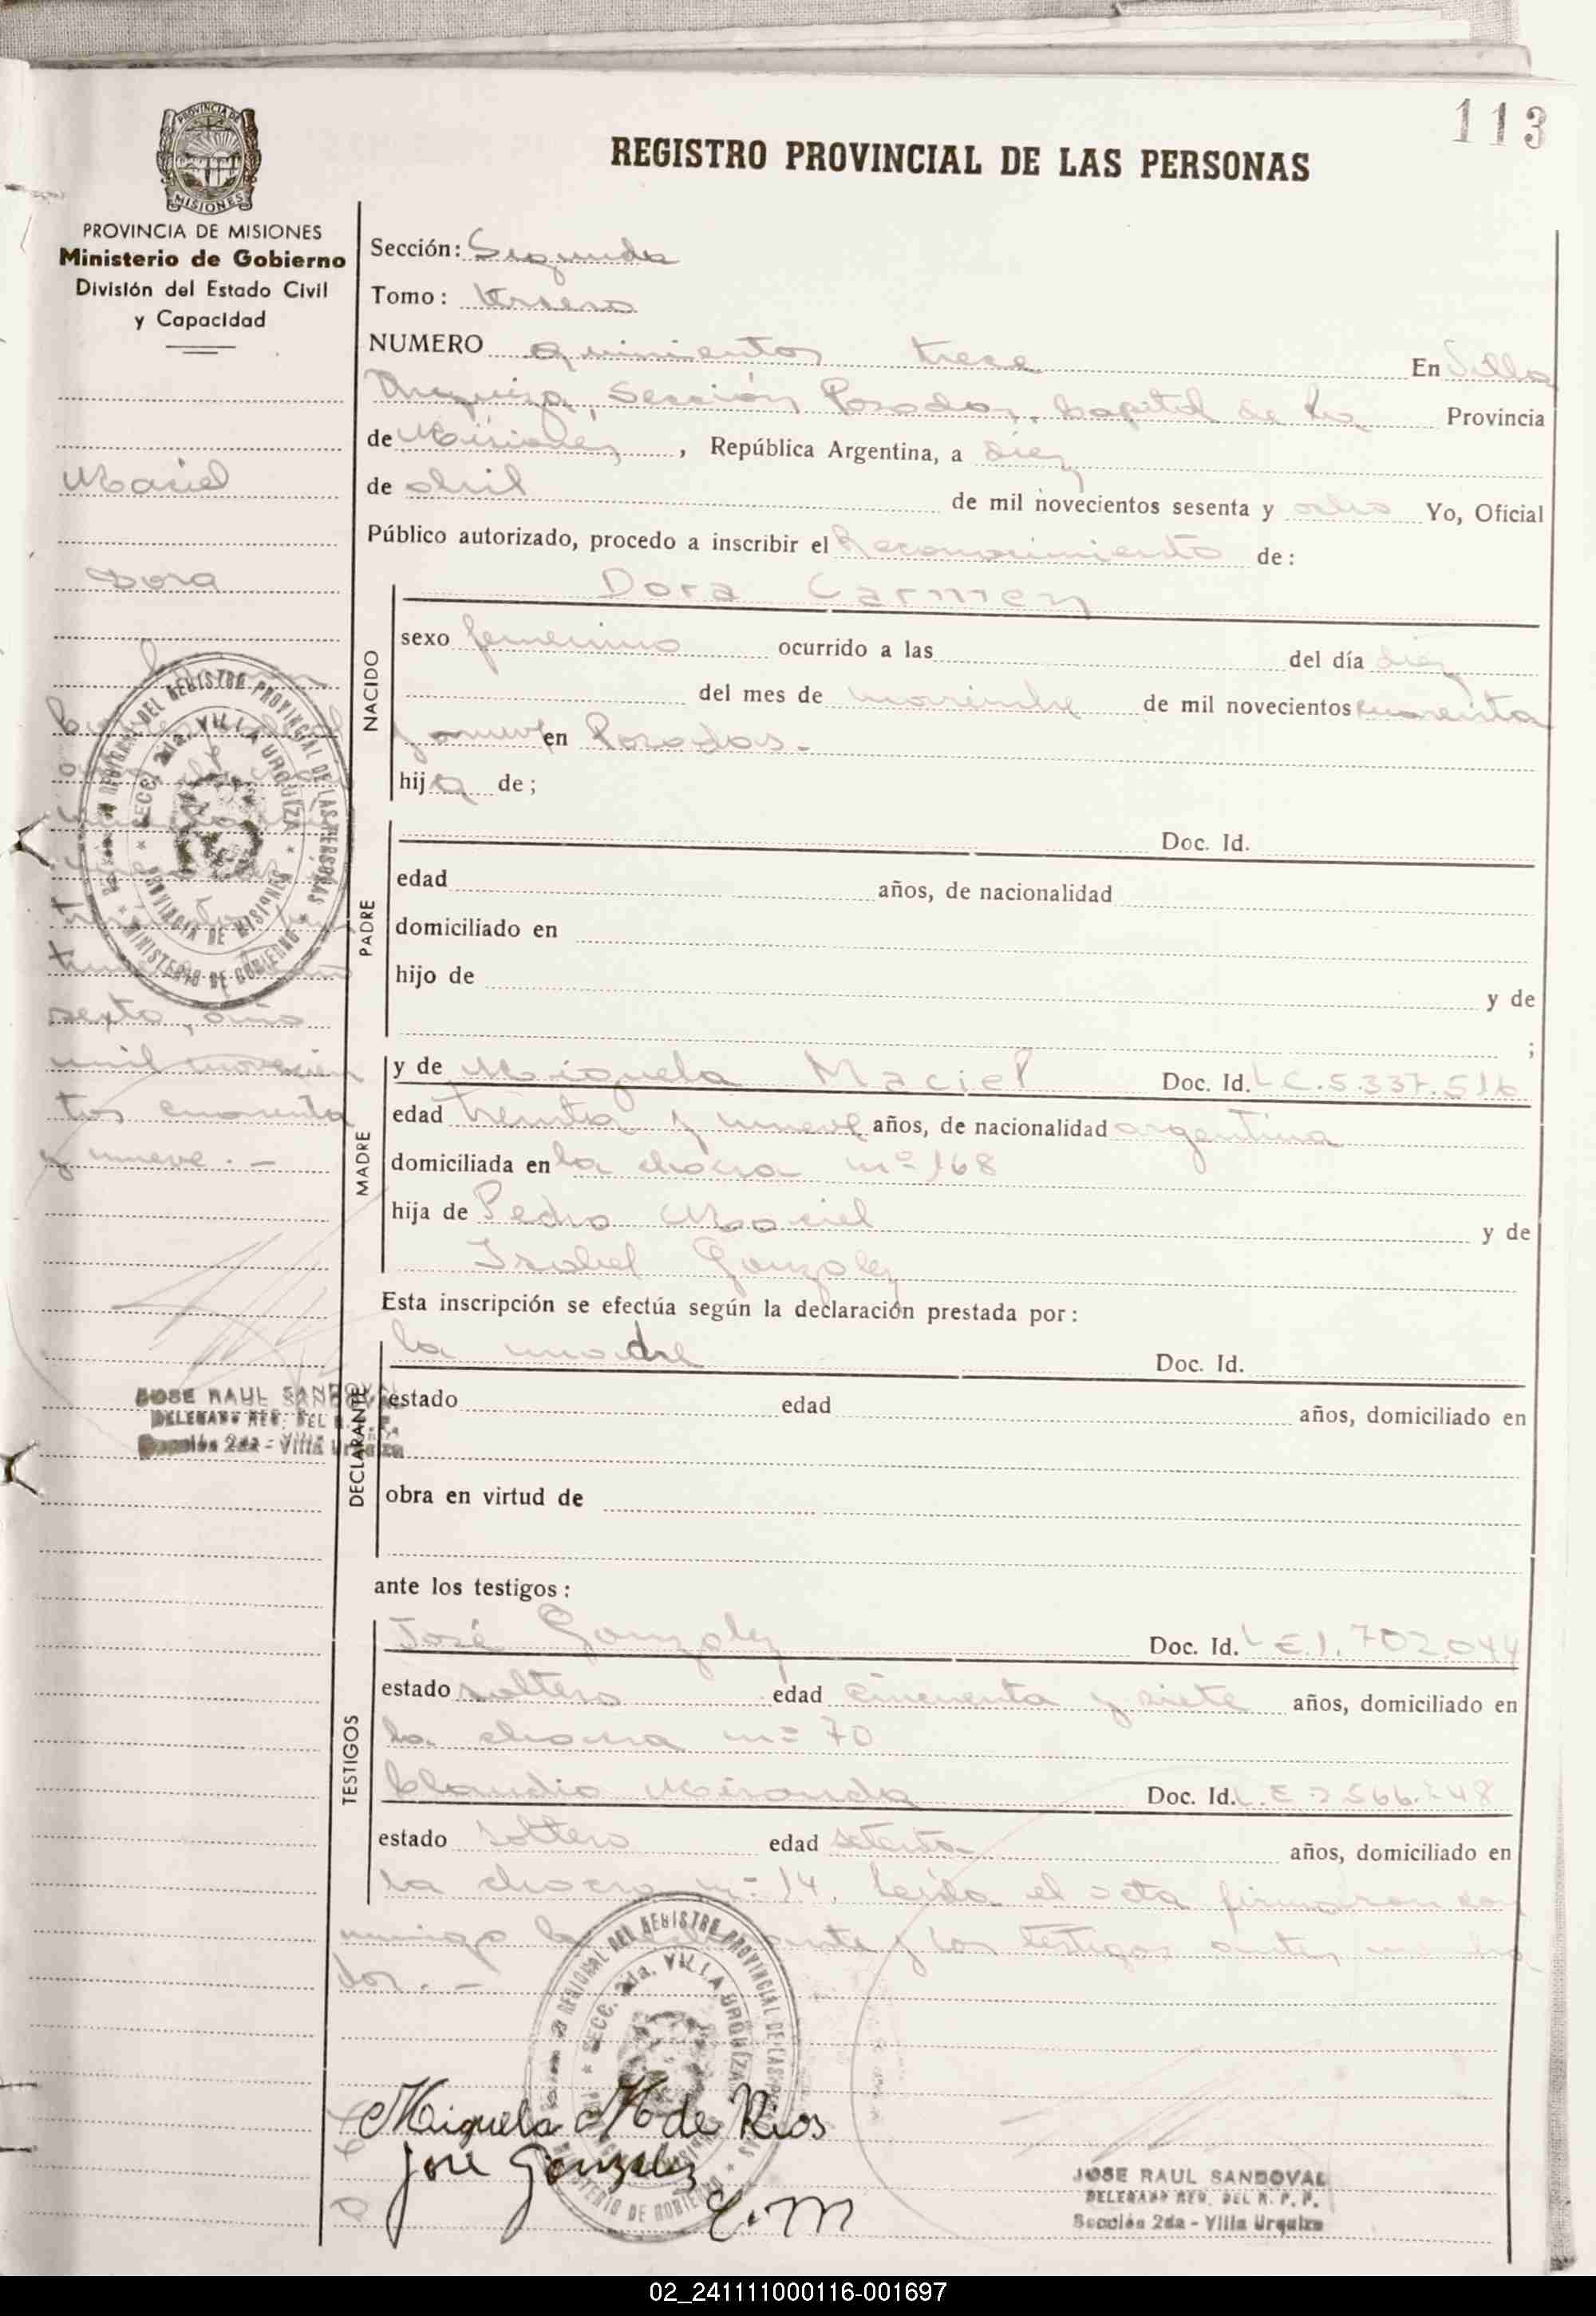 113
PROVINCIA DE
MISIONES
REGISTRO PROVINCIAL DE LAS PERSONAS
PROVINCIA DE MISIONES
Ministerio de Gobierno
División del Estado Civil
y Capacidad
Sección: Segunda
Tomo: tercero
NUMERO quinientos trece En Villa
Urquiza, Sección Posadas, Capital de la Provincia
de Misiones, República Argentina, a diez
de abril de mil novecientos sesenta y ocho Yo, Oficial
Público autorizado, procedo a inscribir el Reconocimiento de:
Maciel
Dora
sexto, año
mil novecien
tos cuarenta
y nueve.-
NACIDO
Dora Carmen
sexo femenino ocurrido a las del día diez
del mes de noviembre de mil novecientos cuarenta
y nueve en Posadas.-
hija de;
PADRE
Doc. Id.
edad años, de nacionalidad
domiciliado en
hijo de y de
;
MADRE
y de Miguela Maciel Doc. Id. L C. 5.337.516
edad treinta y nueve años, de nacionalidad argentina
domiciliada en la chacra nº 168
hija de Pedro Maciel y de
Isabel Gonzalez
Esta inscripción se efectúa según la declaración prestada por:
DECLARANTE
la madre Doc. Id.
estado edad años, domiciliado en
obra en virtud de
ante los testigos:
TESTIGOS
José Gonzalez Doc. Id. L E. 1.702.044
estado soltero edad cincuenta y siete años, domiciliado en
la chacra nº 70
Claudio Miranda Doc. Id. L.E
estado soltero edad setenta años, domiciliado en
la chacra nº 14. Leída el acta firmaron con
migo la y los testigos antes
dos.-
REGIONAL DEL REGISTRO PROVINCIAL DE LAS PERSONAS
SECC. 2da. VILLA URQUIZA
PROVINCIA DE MISIONES
MINISTERIO DE GOBIERNO
JOSE RAUL SANDOVAL
DELEGADO REG. DEL
Sección 2da - Villa Urquiza
REGIONAL DEL REGISTRO PROVINCIAL DE LAS PERSONAS
SECC. 2da. VILLA URQUIZA
MINISTERIO DE GOBIERNO
Miguela M de Rios
José Gonzalez
C.M
JOSE RAUL SANDOVAL
DELEGADO REG. DEL R. P. P.
Sección 2da - Villa Urquiza
02_241111000116-001697